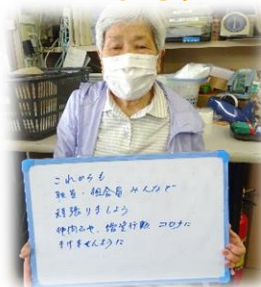 これからも
職員・組合員 みんなで
頑張りましょう
仲間たや、増室行動 コロナに
まけませんように